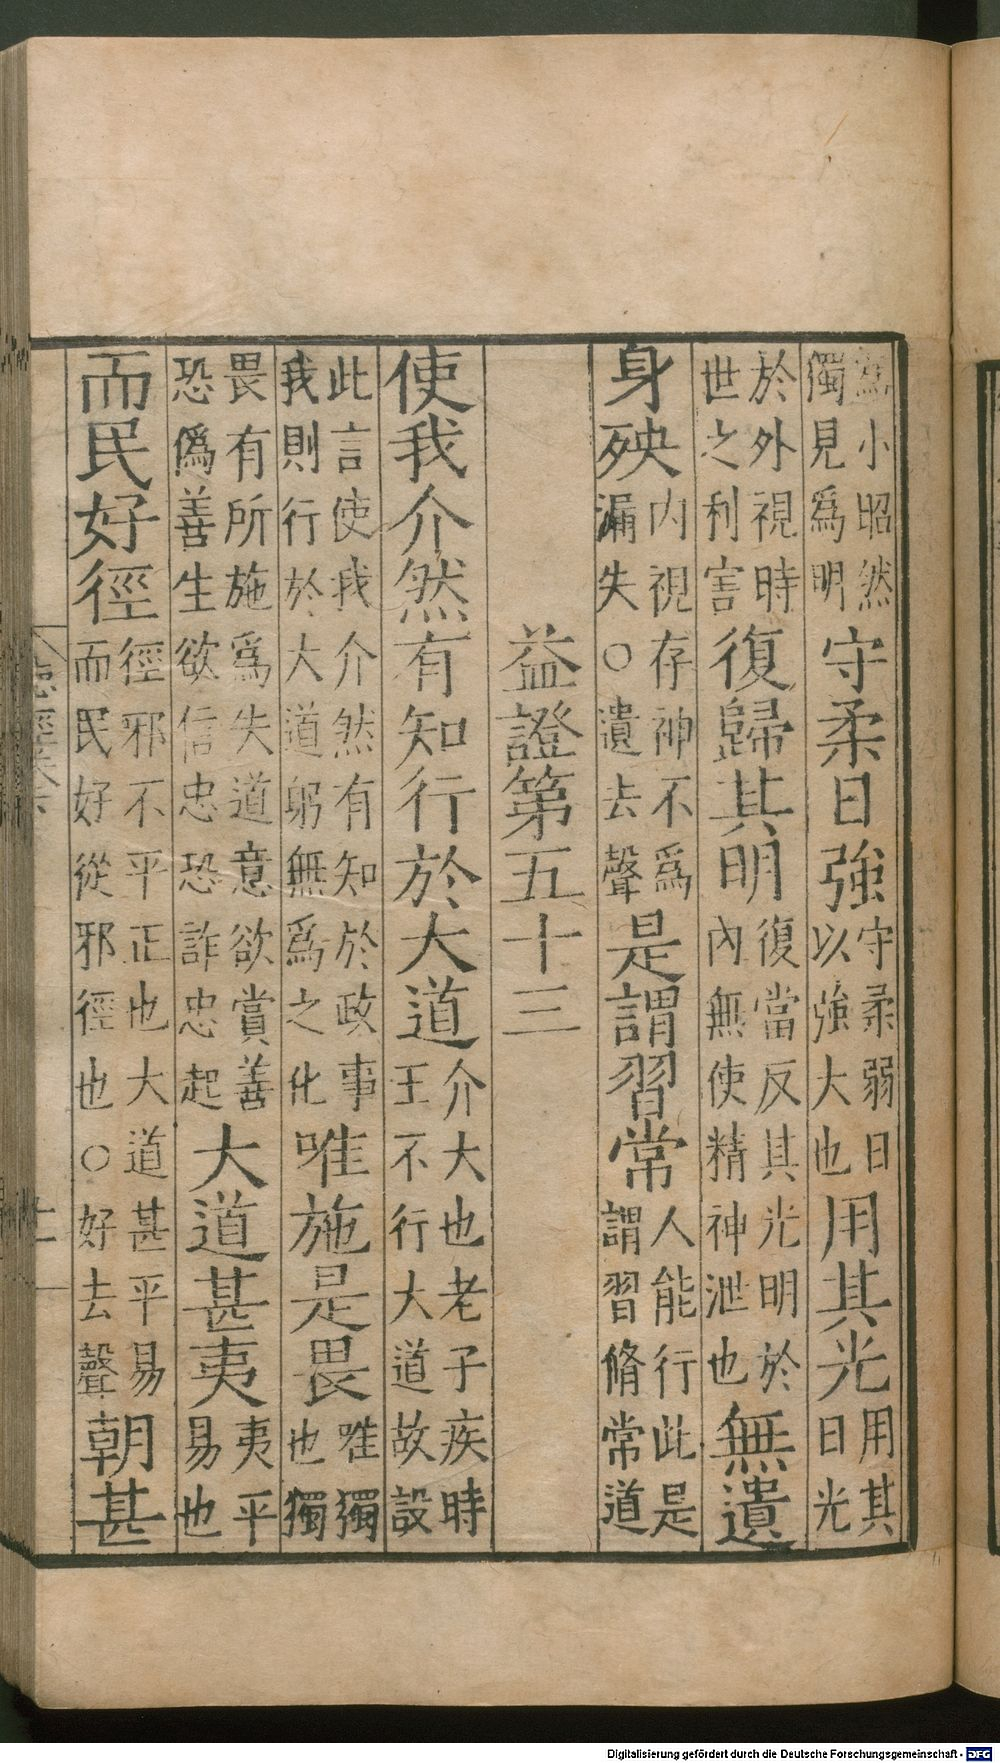 爲小昭然獨見爲明守柔日強守柔弱日以強大也用其光用其日光
於外視時世之利害復歸其明復當反其光明於內無使精神泄也無遺
身殃内視存神不爲漏失○遺去聲是謂習常人能行此是謂習脩常道
益證第五十三
使我介然有知行於大道介大也老子疾時王不行大道故設
此言使我介然有知於政事我則行於大道躬無爲之化唯施是畏唯獨也獨
畏有所施爲失道意欲賞善恐僞善生欲信忠恐詐忠起大道甚夷夷平易也
而民好徑徑邪不平正也大道甚平易而民好從邪徑也○好去聲朝甚
Digitalisierung gefördert durch die Deutsche Forschungsgemeinschaft - DFG